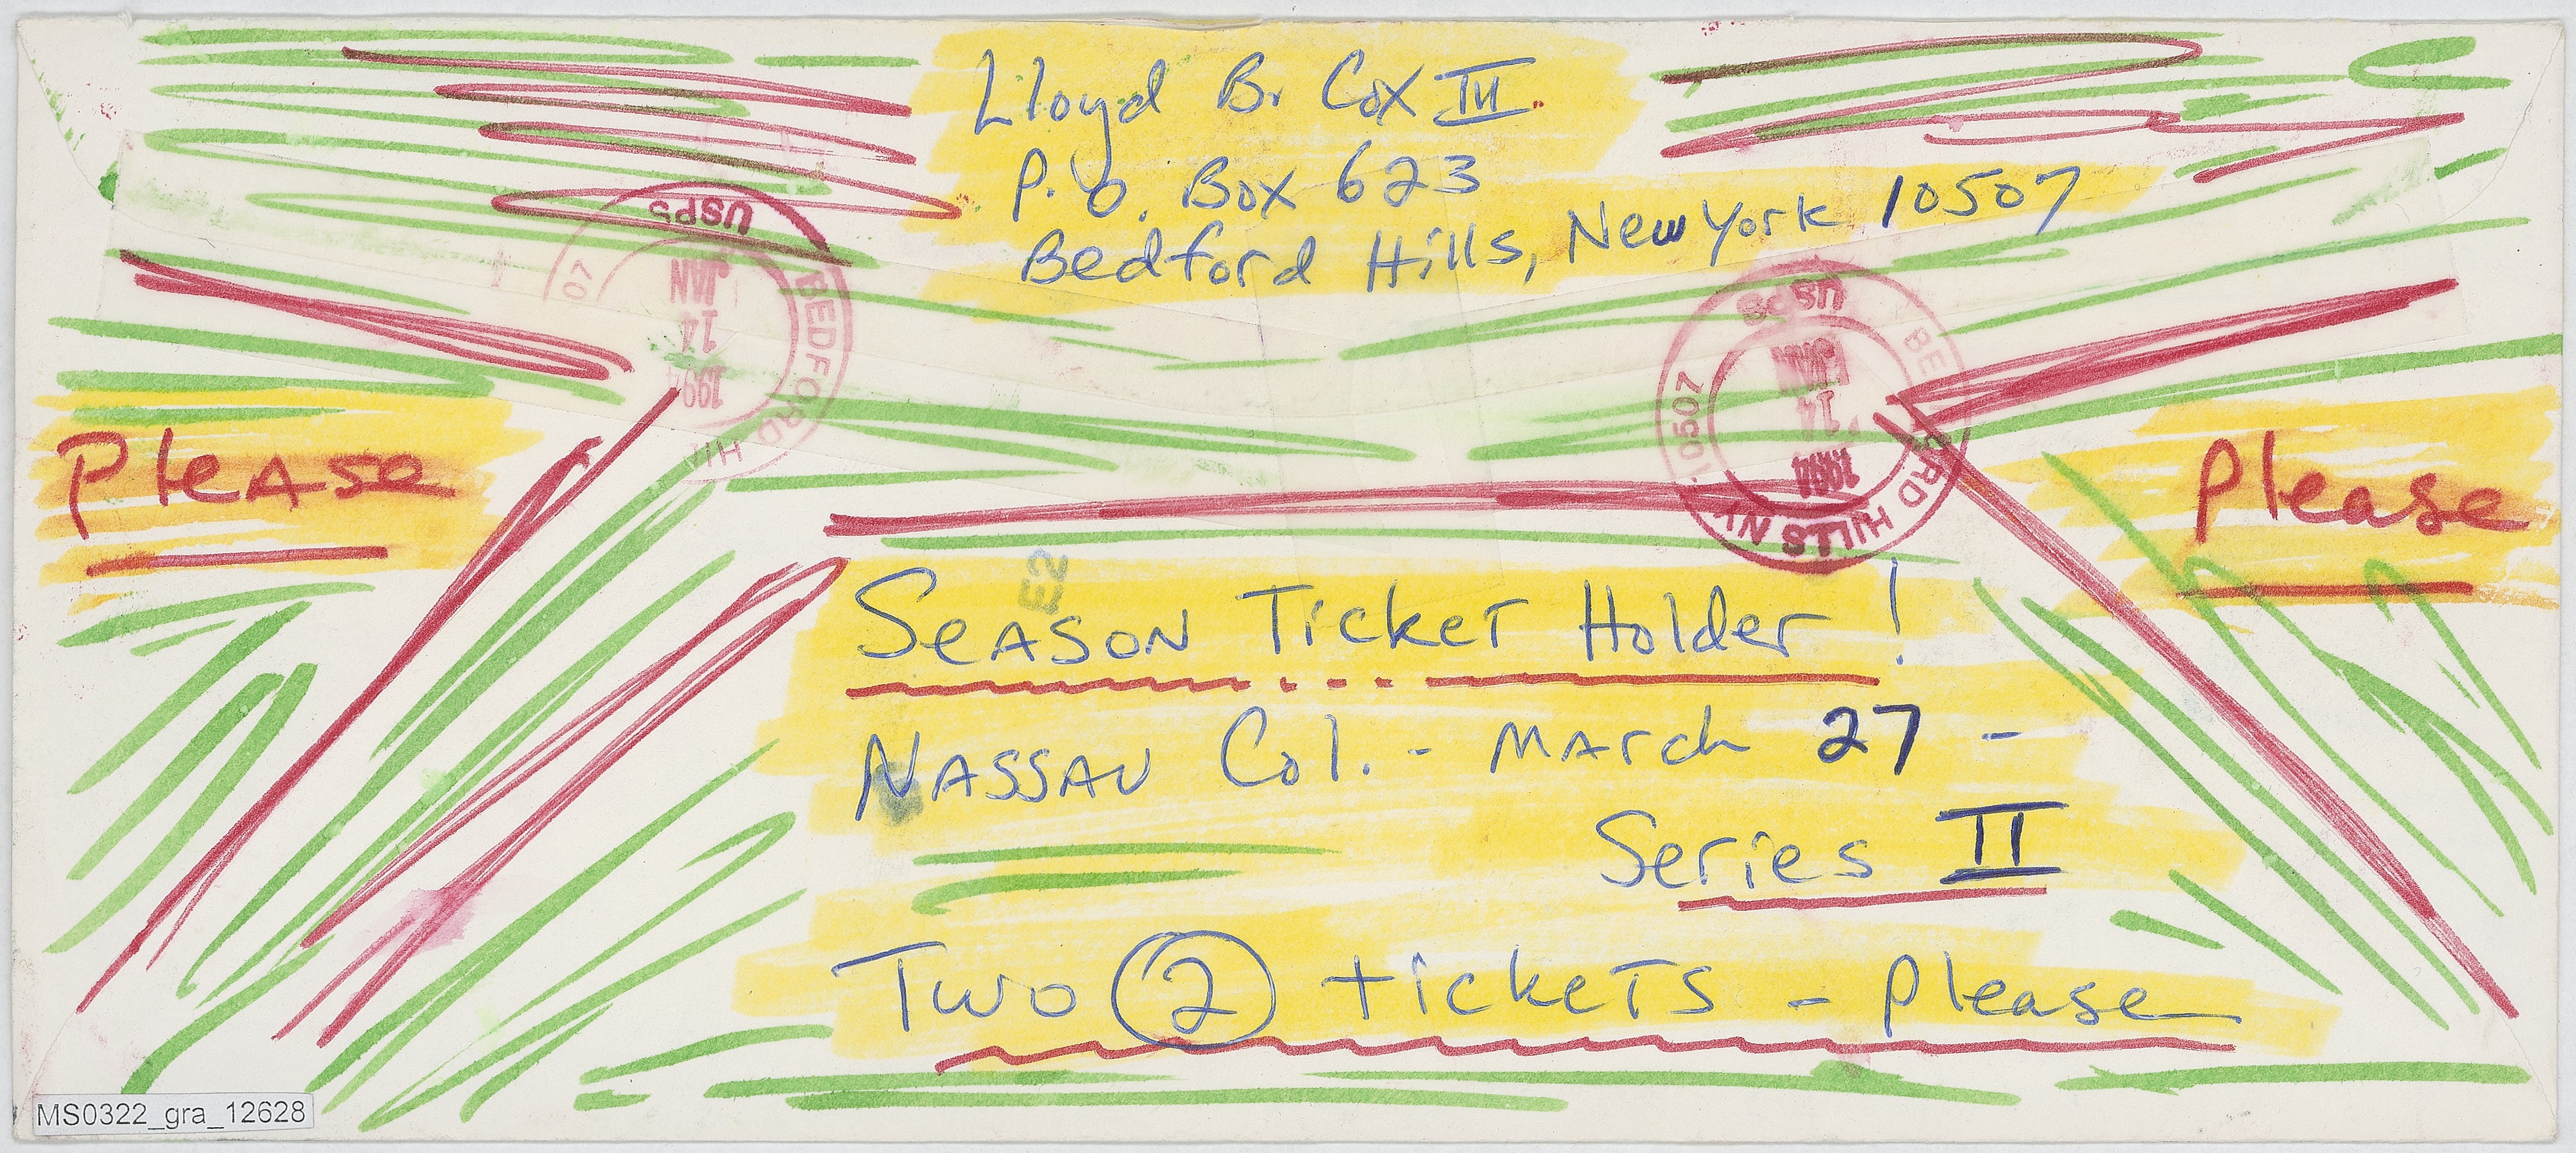 Lloyd B. Cox III
P.O. Box 623
Bedford Hills, New York 10507
USPS
BEDFORD HIL
07
JAN
14
1994
USPS
BEDFORD HILLS NY
10507
JAN
14
1994
Please
Please
E2
Season Ticket Holder!
Nassau Col. - March 27 -
Series II
Two 2 tickets - please
MS0322_gra_12628